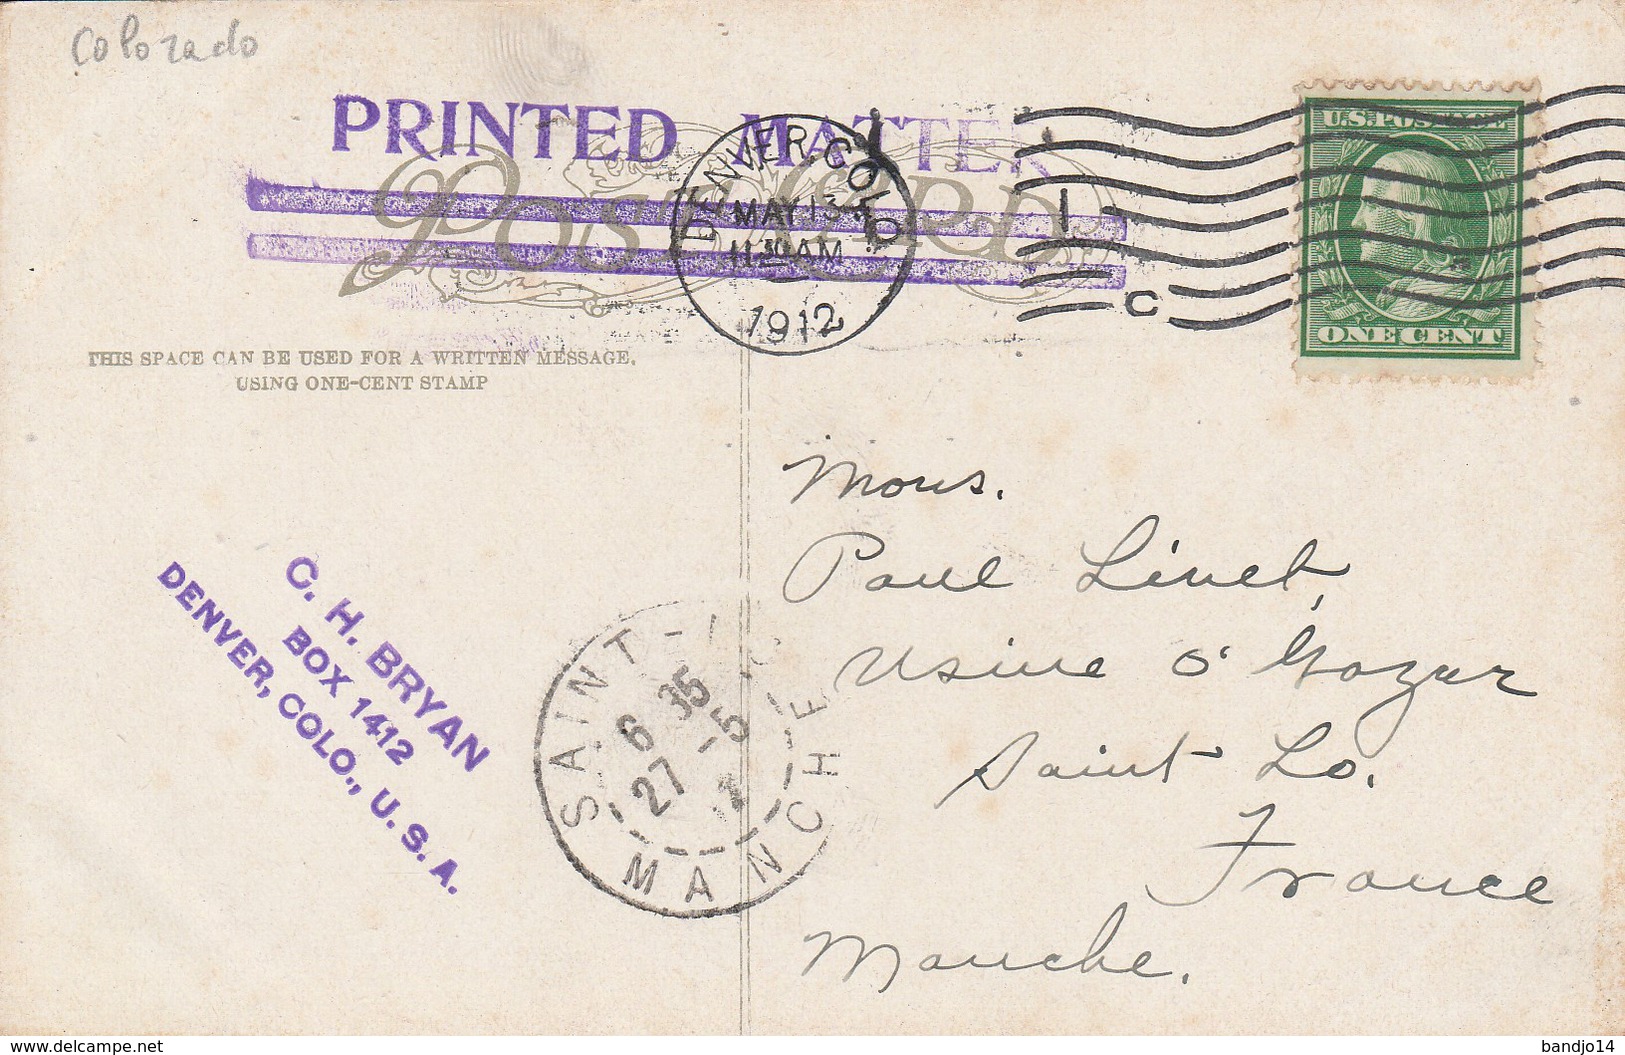 Colorado
PRINTED MATTER
Post Card
DENVER, COLO.
MAY 13
11 30 AM
1912
1
C
U.S. POSTAGE
ONE CENT
THIS SPACE CAN BE USED FOR A WRITTEN MESSAGE.
USING ONE-CENT STAMP
Mons.
Paul Linet,
Usine o' Gozar
Saint Lo.
France
Manche.
C. H. BRYAN
BOX 1412
DENVER, COLO., U.S.A.
SAINT-
6 35
27 -5
MANCHE
www.delcampe.net
bandjo14